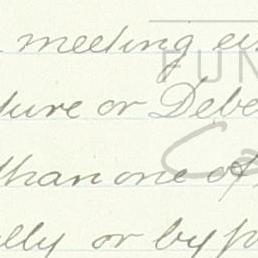 meeting
ture or Debe
than one of
ally or by p